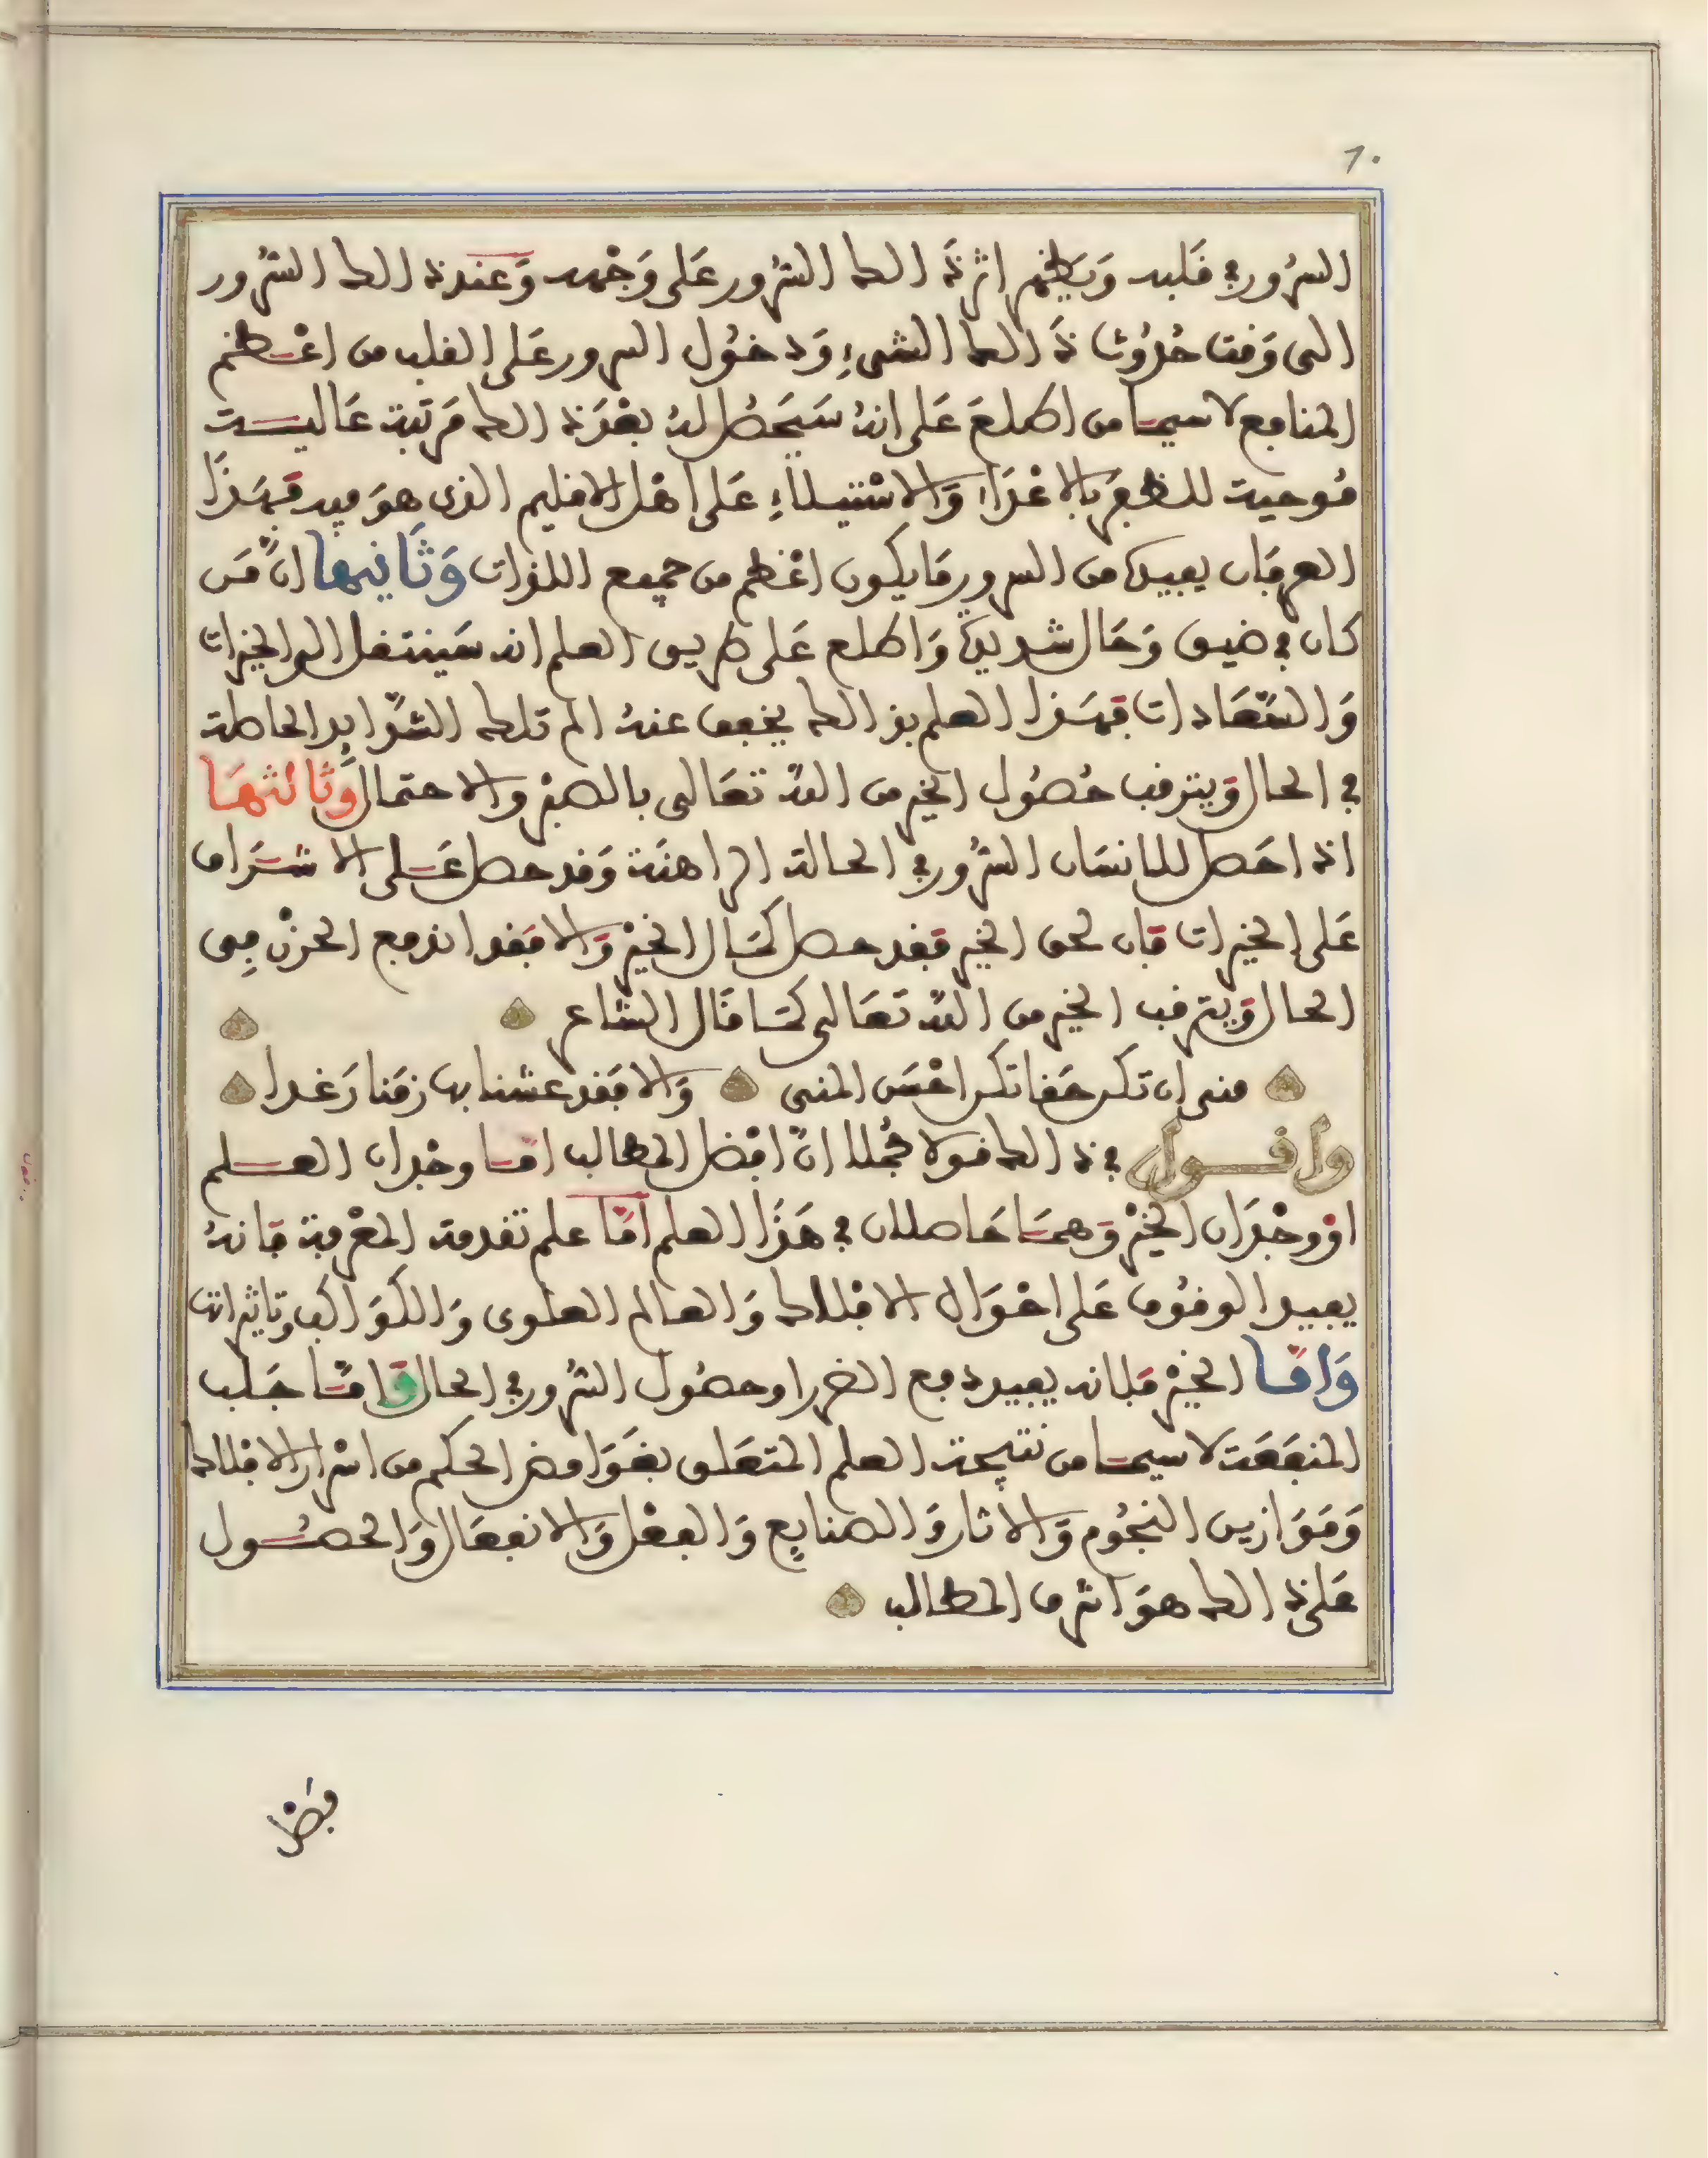 ٦٠
السُرور في قلبه وَيَظهر اثر ذَالك السُّرور عَلى وَجْهه وَعند ذالك السُّرور
الى وَقت حُدُوث ذَالك الشيءِ وَدخُول السرور عَلى القلب من اعْظم
المنافع لاسيما من اطلعَ عَلى انهُ سَيَحصُل لهُ بعْدَ ذالك مَرتبة عَاليـة
مُوجبة للظفَر بالاعْدَاء وَالاسْتيلاءِ عَلى اهْل الاقليم الذى هوَ فيه فهَذَا
العرفَان يفيدهُ من السرور مَا يكون اعْظم من جميع اللذات وَثَانيها انَّ مَن
كان في ضيق وَحَال شديدة وَاطلع عَلى طريق العلم انه سَينتقل الى الخيرات
وَالسَّعَادات فهَذا العلم بذالك يخفف عنهُ الم تلك الشَّدَايد الحاصلة
في الحال وَيترقب حُصُول الخير من اللهِ تعَالى بالصبْر والاحتمال وَثَالثهَا
اذا حَصل للانسَان السُّرور في الحالة الراهنَة وَقد حصل عَـلى الاشـرَاف
عَلى الخيرات فَان لحق الخير فَقد حصل كمَال الخيْر وَالا فَقد اندفع الحزْن فِى
الحال وَيترقب الخير من اللهِ تَعَالى كمَا قَال الشاعر
منى ان تكن حَقا تكن احْسَن المنى وَالا فَقد عشنا بها زمَنا رَغدا
واقـول في ذالك قولا مُجملا انَّ افضل المطالب امَّـا وجْدان العـلم
اوْ وجْدَان الخيْر وَهمَا حَاصلان في هَذَا العلم امَّا علم تقدمة المعْرفة فَانهُ
يفيد الوقُوف عَلى احْوَال الافْلاك وَالعالم العلوى وَالكَوَاكب وتاثيراته
وَامَّـا الخيْر فَلانه يفيد دفع الضرر او حصُول السُّرور في الحال وَامَّا جَلب
المنفَعَة لاسيمـا من نتيجة العلم المتعَلق بغَوَامض الحكم من اسْرار الافْلاك
وَمَوَازين النجُوم وَالاثار وَالصنايع وَالفعْل وَالانفعَال وَالحصُـول
عَلى ذالك هوَ اشرف المطالب
فضل